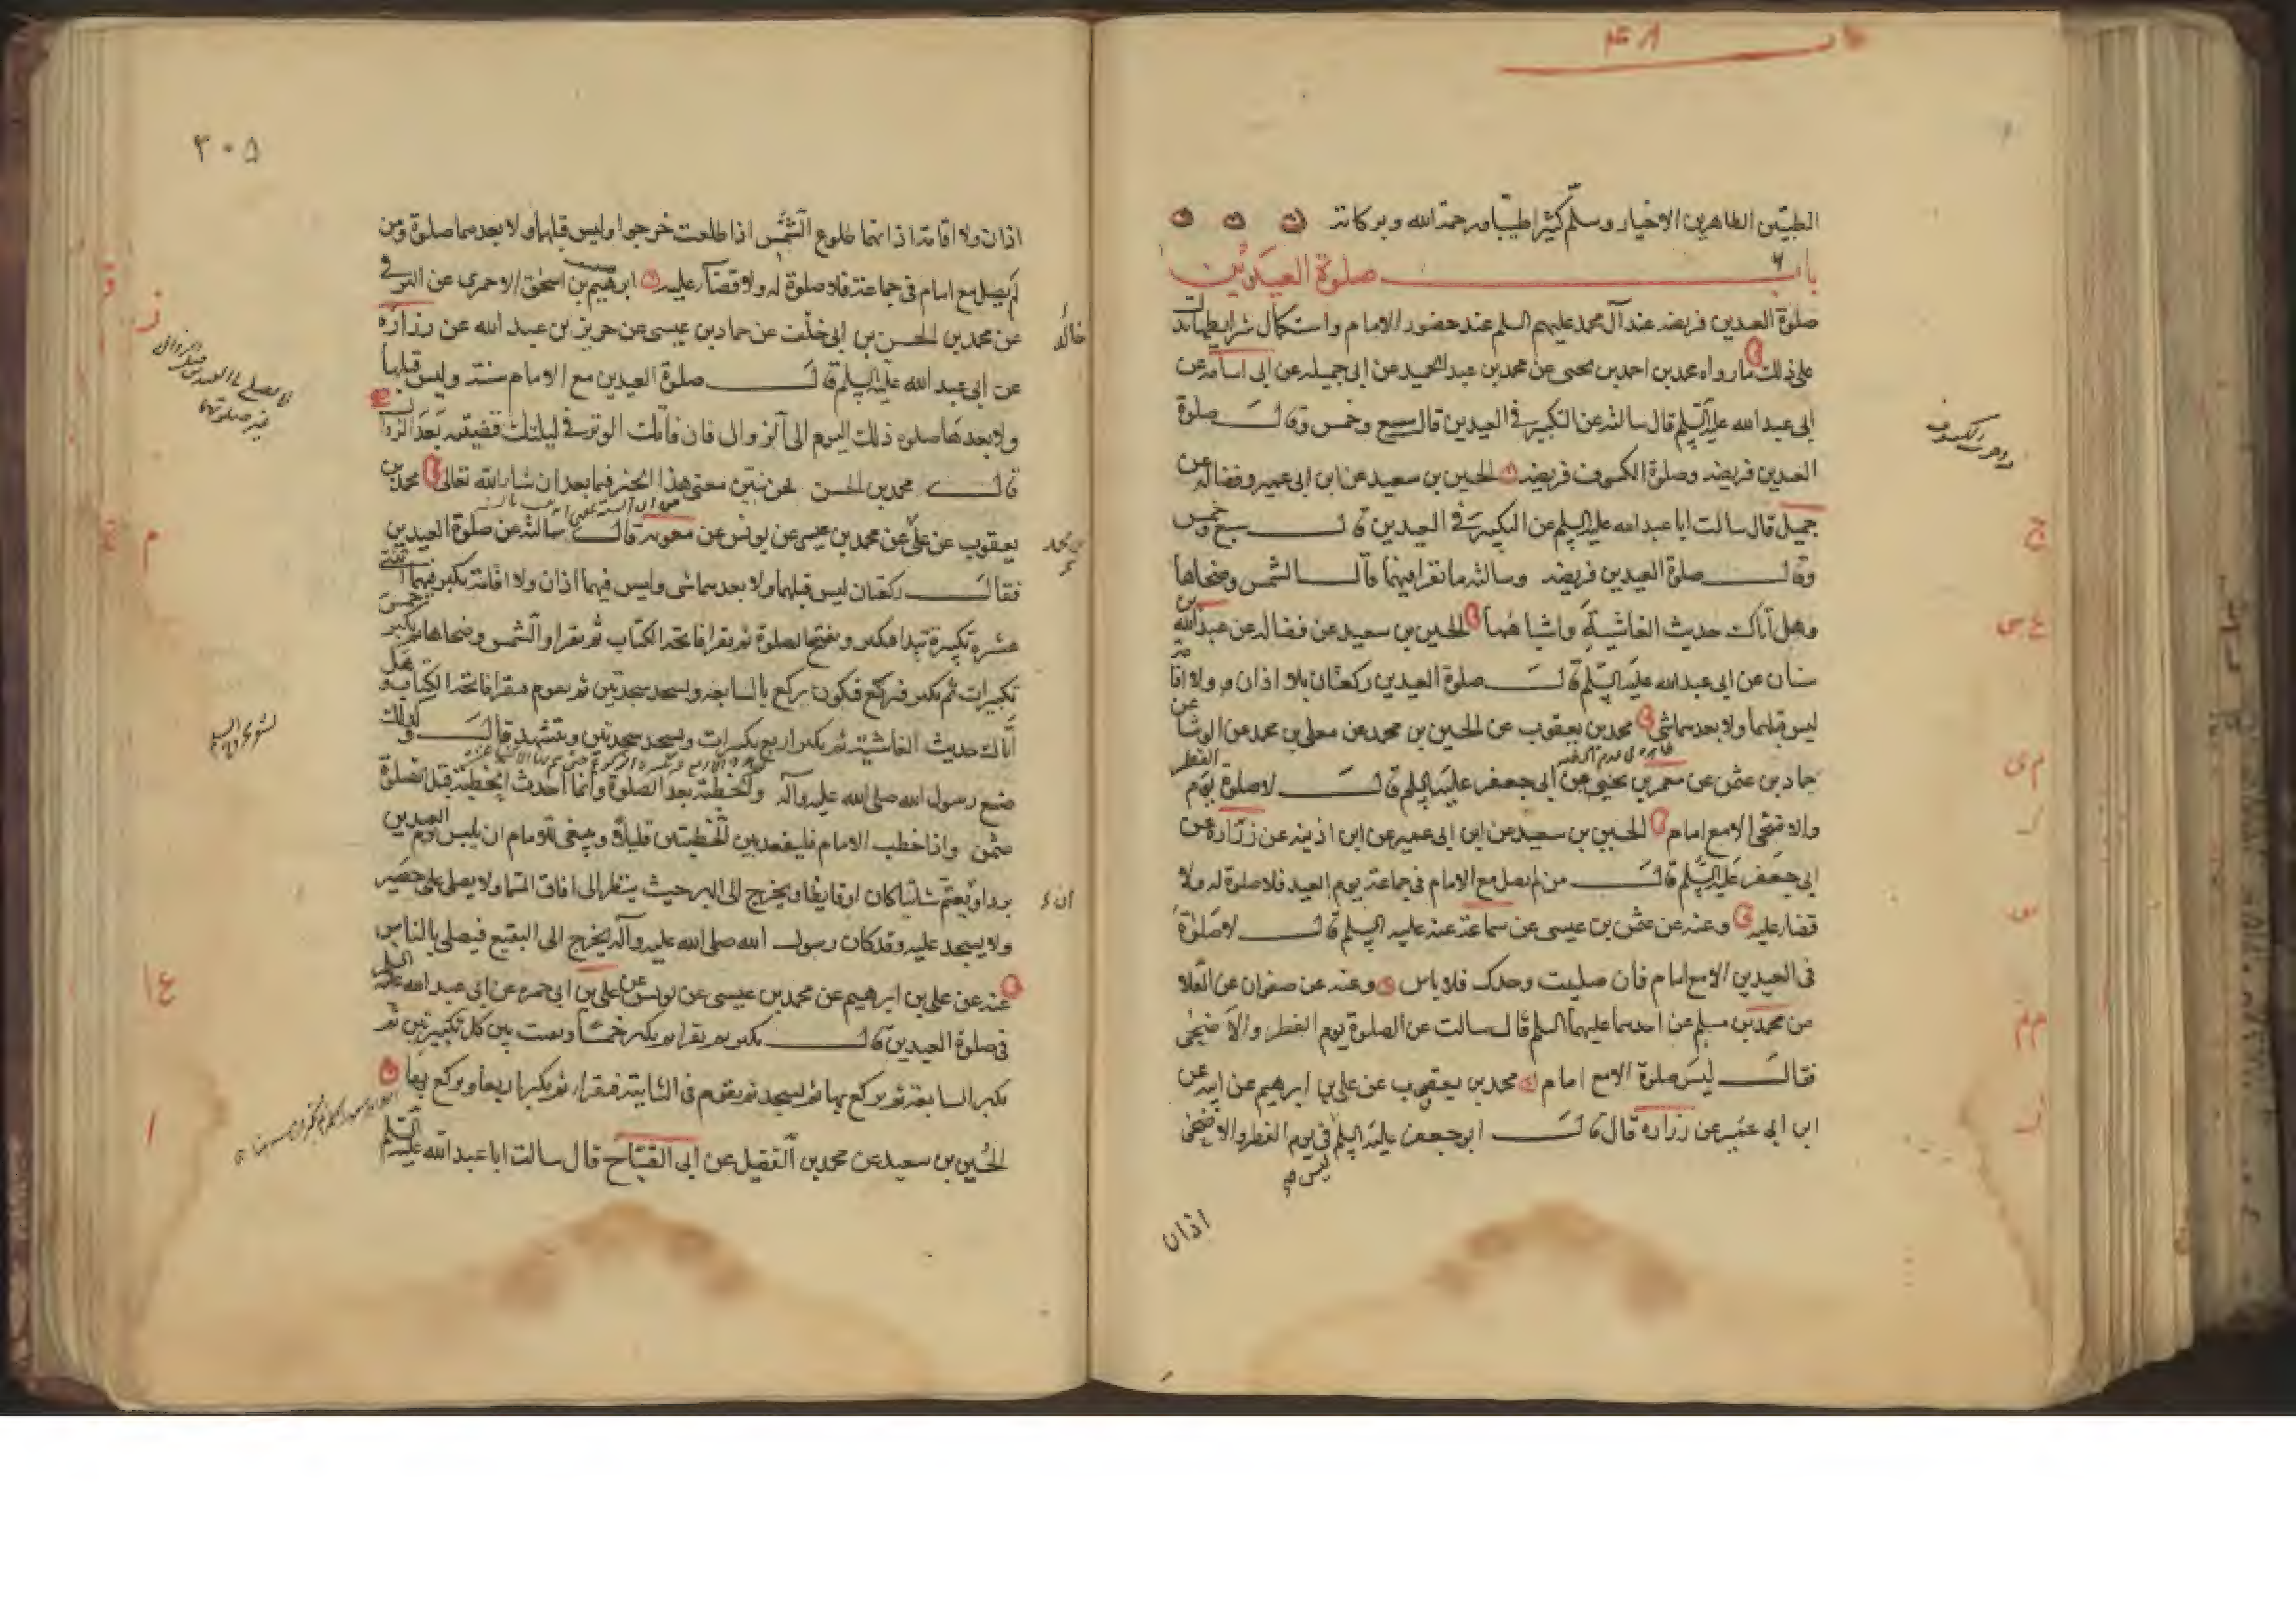 الطيبين الطاهرين الاخيار وسلم كثيرا طيبا ورحمة الله وبركاته
باب صلوة العيدين
صلوة العيدين فريضه عند آل محمد عليهم السلم عند حضور الامام واستكمال شرايطها يدل
على ذلك ما رواه محمد بن احمد بن يحيى عن محمد بن عبد الحميد عن ابى جميله عن ابى اسامه عن
ابى عبد الله عليه السلم قال سالته عن التكبير فى العيدين قال سبع وخمس وقال صلوة
العيدين فريضه وصلوة الكسوف فريضه الحسين بن سعيد عن ابن ابى عمير وفضاله عن
جميل قال سالت ابا عبد الله عليه السلم عن التكبير فى العيدين قال سبع وخمس
وقال صلوة العيدين فريضه وسالته ما يقرا فيهما قال الشمس وضحاها
وهل اتاك حديث الغاشية واشباههما الحسين بن سعيد عن فضاله عن عبد الله بن
سنان عن ابى عبد الله عليه السلم قال صلوة العيدين ركعتان بلا اذان ولا اقامة
ليس قبلهما ولا بعدهما شى محمد بن يعقوب عن الحسين بن محمد عن معلى بن محمد عن الوشا عن
حماد بن عثمن عن معمر بن يحيى عن ابى جعفر عليه السلم قال لا صلوة يوم الفطر
والاضحى الا مع امام الحسين بن سعيد عن ابن ابى عمير عن ابن اذينه عن زرارة عن
ابى جعفر عليه السلم قال من لم يصل مع الامام فى جماعة يوم العيد فلا صلوة له ولا
قضا عليه وعنه عن عثمن بن عيسى عن سماعة عنه عليه السلم قال لا صلوة
فى العيدين الا مع امام فان صليت وحدك فلا باس وعنه عن صفوان عن العلا
عن محمد بن مسلم عن احدهما عليهما السلم قال سالت عن الصلوة يوم الفطر والاضحى
فقال ليس صلوة الا مع امام محمد بن يعقوب عن على بن ابرهيم عن ابيه عن
ابن ابى عمير عن زراره قال قال ابو جعفر عليه السلم فى يوم الفطر والاضحى
ليس
اذان
٣٠٥
اذان ولا اقامة اذانهما طلوع الشمس اذا طلعت خرجوا وليس قبلهما ولا بعدهما صلوة ومن
لم يصل مع امام فى جماعة فلا صلوة له ولا قضآء عليه ابرهيم بن اسحق الاحمرى عن البرقى
عن محمد بن الحسن بن ابى خلف عن حماد بن عيسى عن حريز بن عبد الله عن زرارة
خالد
عن ابى عبد الله عليه السلم قال صلوة العيدين مع الامام سنة وليس قبلها
ولا بعدها صلوة ذلك اليوم الى الزوال فان فاتك الوتر فى ليلتك قضيته بعد الزوال
قال محمد بن الحسن نحن نبين معنى هذا الخبر فيما بعد ان شاء الله تعالى محمد بن
يعقوب عن على عن محمد بن عيسى عن يونس عن معوية قال سالته عن صلوة العيدين
بن محمد
فقال ركعتان ليس قبلهما ولا بعدهما شى وليس فيهما اذان ولا اقامة تكبر فيهما اثنتى
عشرة تكبيرة تبدا فتكبر وتفتح الصلوة ثم تقرا فاتحة الكتاب ثم تقرا والشمس وضحاها ثم تكبر خمس
تكبيرات ثم تكبر وتركع فتكون تركع بالسابعه وتسجد سجدتين ثم تقوم فتقرا فاتحة الكتاب وهل
اتاك حديث الغاشية ثم تكبر اربع تكبيرات وتسجد سجدتين وتتشهد قال وكذلك
صنع رسول الله صلى الله عليه وآله والخطبة بعد الصلوة وانما احدث الخطبة قبل الصلوة
عثمن واذا خطب الامام فليقعد بين الخطبتين قليلا وينبغى للامام ان يلبس يوم العيدين
بردا ويعتم شاتيا كان او قايظا ويخرج الى البر حيث ينظر الى افاق السما ولا يصلى على حصير
ولا يسجد عليه وقد كان رسول الله صلى الله عليه وآله يخرج الى البقيع فيصلى بالناس
عنه عن على بن ابرهيم عن محمد بن عيسى عن يونس عن على بن ابى حمزه عن ابى عبد الله عليه السلم
فى صلوة العيدين قال يكبر ثم يقرا ثم يكبر خمسا ويقنت بين كل تكبيرتين ثم
يكبر السابعة ثم يركع بها ثم يسجد ثم يقوم فى الثانية فيقرا ثم يكبر اربعا ويركع بها
الحسين بن سعيد عن محمد بن الفضيل عن ابى الصباح قال سالت ابا عبد الله عليه السلم